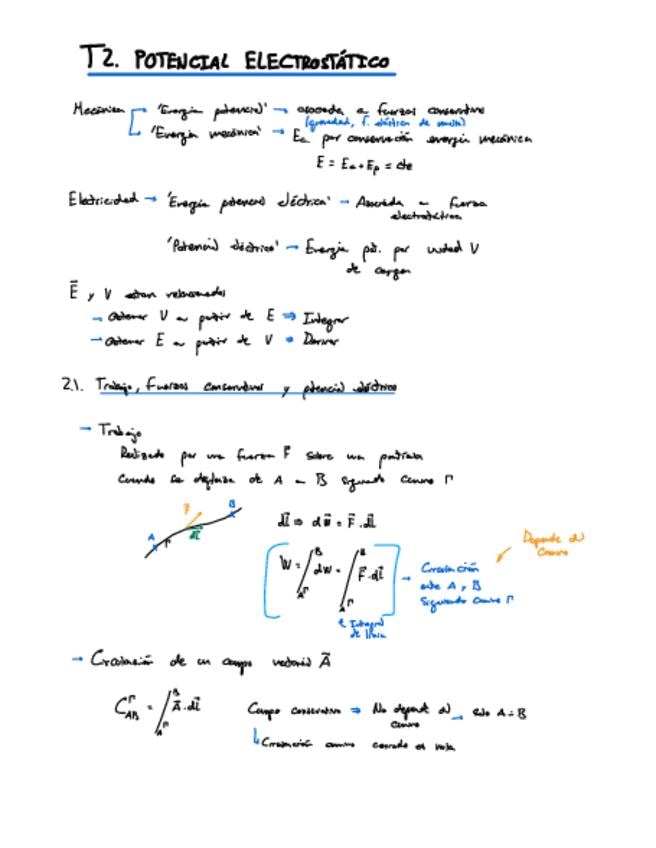 T2. POTENCIAL ELECTROSTÁTICO
Mecánica → 'Energía potencial' → asociada a fuerzas conservativas
(gravedad, f. elástica de muelle)
'Energía mecánica' → Ec por conservación energía mecánica
E = Ec + Ep = cte
Electricidad → 'Energía potencial eléctrica' → Asociada a fuerza
electrostática
'Potencial eléctrico' → Energía pot. por unidad V
de carga
E⃗ y V están relacionados
→ obtener V a partir de E ⇒ Integrar
→ obtener E a partir de V ⇒ Derivar
2.1. Trabajo, fuerzas conservativas y potencial eléctrico
→ Trabajo
Realizado por una fuerza F⃗ sobre una partícula
cuando se desplaza de A a B siguiendo camino Γ
A Γ F⃗ dl⃗ B
dl⃗ ⇒ dW = F⃗·dl⃗
W = ∫_A^B Γ dW = ∫_A^B Γ F⃗·dl⃗ → Circulación
entre A y B
siguiendo camino Γ
Depende del
camino
Integral
de línea
→ Circulación de un campo vectorial A⃗
C_AB^Γ = ∫_A^B Γ A⃗·dl⃗
Campo conservativo ⇒ No depende del
camino → solo A = B
↳ Circulación camino cerrado es nula